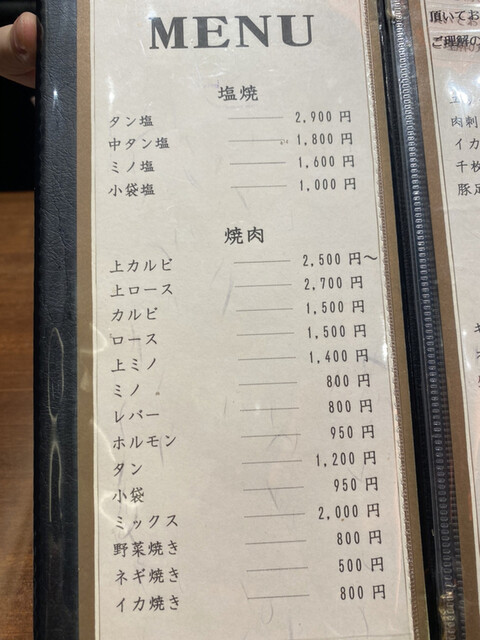 MENU
塩焼
タン塩 2,900 円
中タン塩 1,800 円
ミノ塩 1,600 円
小袋塩 1,000 円
焼肉
上カルビ 2,500 円〜
上ロース 2,700 円
カルビ 1,500 円
ロース 1,500 円
上ミノ 1,400 円
ミノ 800 円
レバー 800 円
ホルモン 950 円
タン 1,200 円
小袋 950 円
ミックス 2,000 円
野菜焼き 800 円
ネギ焼き 500 円
イカ焼き 800 円
頂いてお
ご理解の
肉刺
イカ
千枚
豚足